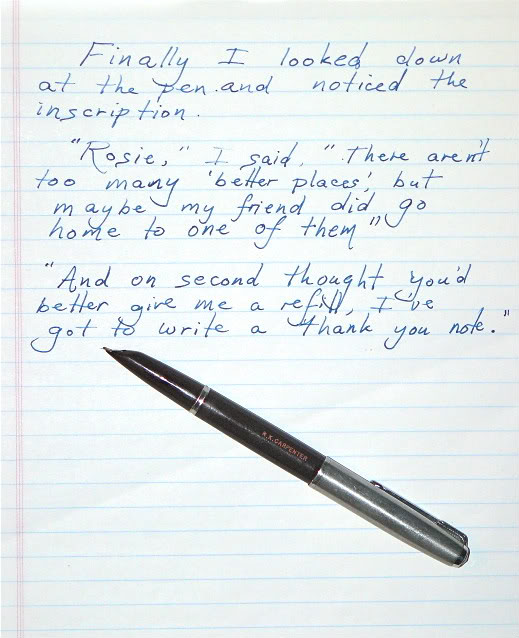 Finally I looked down
at the pen and noticed the
inscription.
"Rosie," I said, "There aren't
too many 'better places', but
maybe my friend did go
home to one of them"
"And on second thought you'd
better give me a refill, I've
got to write a thank you note."
R.K.CARPENTER